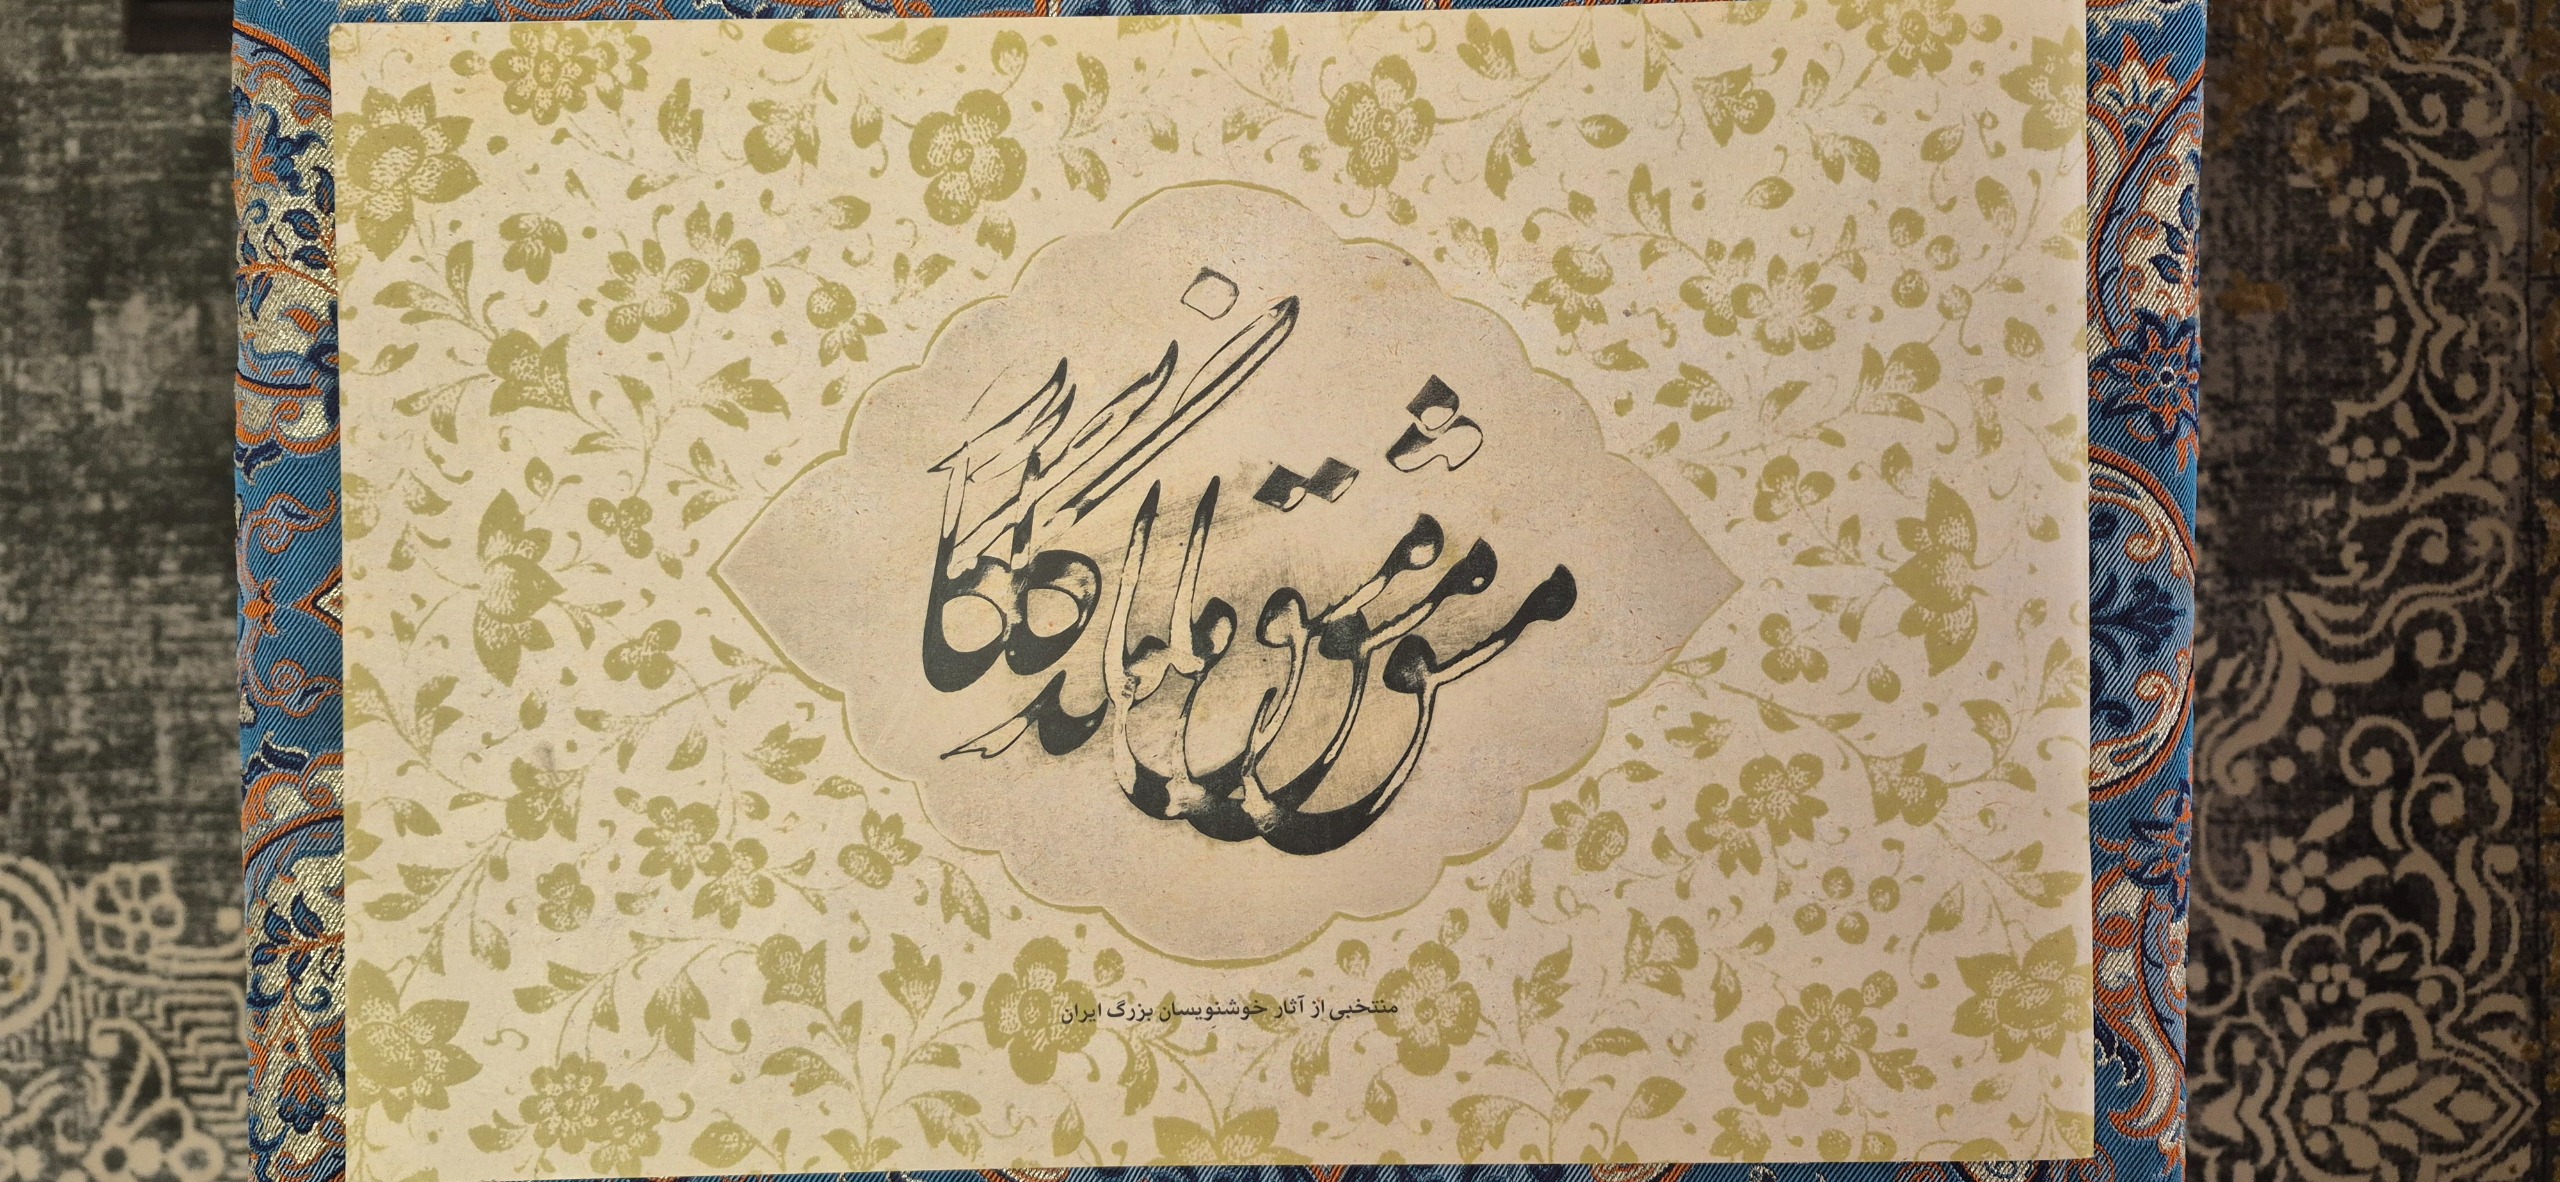 مشق ماندگار
منتخبی از آثار خوشنویسان بزرگ ایران